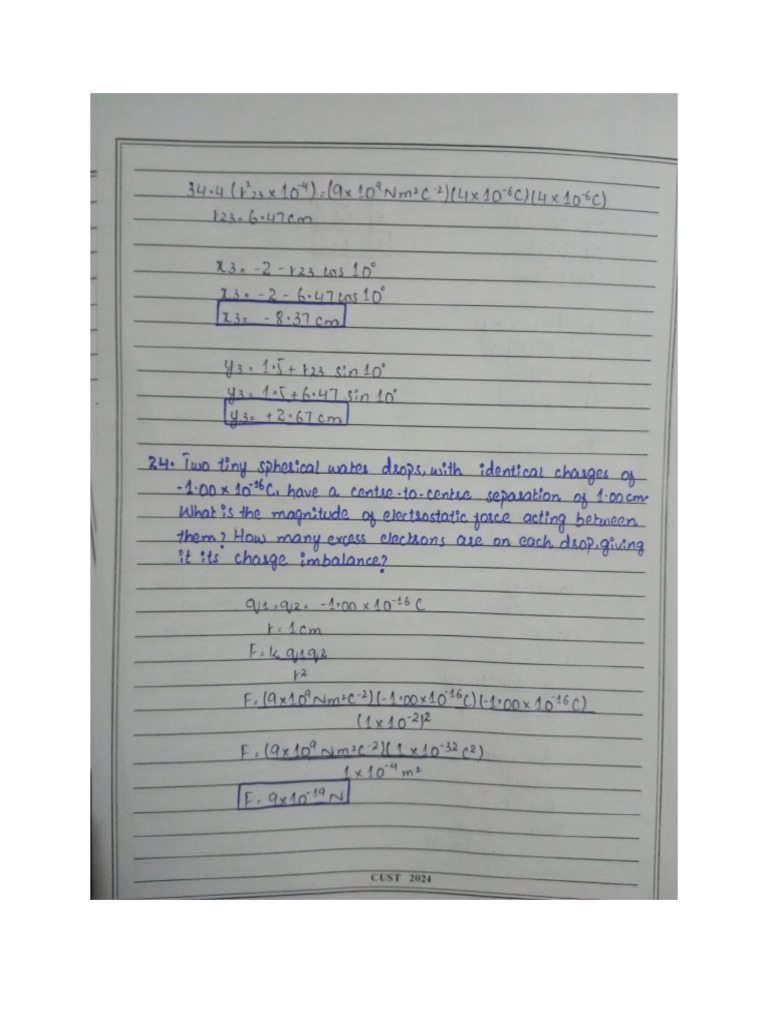 34.4 (r²₂₃ x 10⁻⁴) = (9x10⁹Nm²C⁻²)(4x10⁻⁶C)(4x10⁻⁶C)
r23 = 6.47cm
x3 = -2 - r23 cos 10°
x3 = -2 - 6.47cos 10°
x3 = -8.37cm
y3 = 1.5 + r23 sin 10°
y3 = 1.5 + 6.47 sin 10°
y3 = +2.67cm
24. Two tiny spherical water drops, with identical charges of
-1.00 x 10⁻¹⁶C, have a centre-to-centre separation of 1.00cm.
What is the magnitude of electrostatic force acting between
them? How many excess electrons are on each drop, giving
it its charge imbalance?
q1 = q2 = -1.00 x 10⁻¹⁶ C
r = 1cm
F = k q1q2
r²
F = (9x10⁹Nm²C⁻²)(-1.00x10⁻¹⁶C)(-1.00x10⁻¹⁶C)
(1x10⁻²)²
F = (9x10⁹Nm²C⁻²)(1x10⁻³²C²)
1x10⁻⁴m²
F = 9x10⁻¹⁹N
CUST 2024